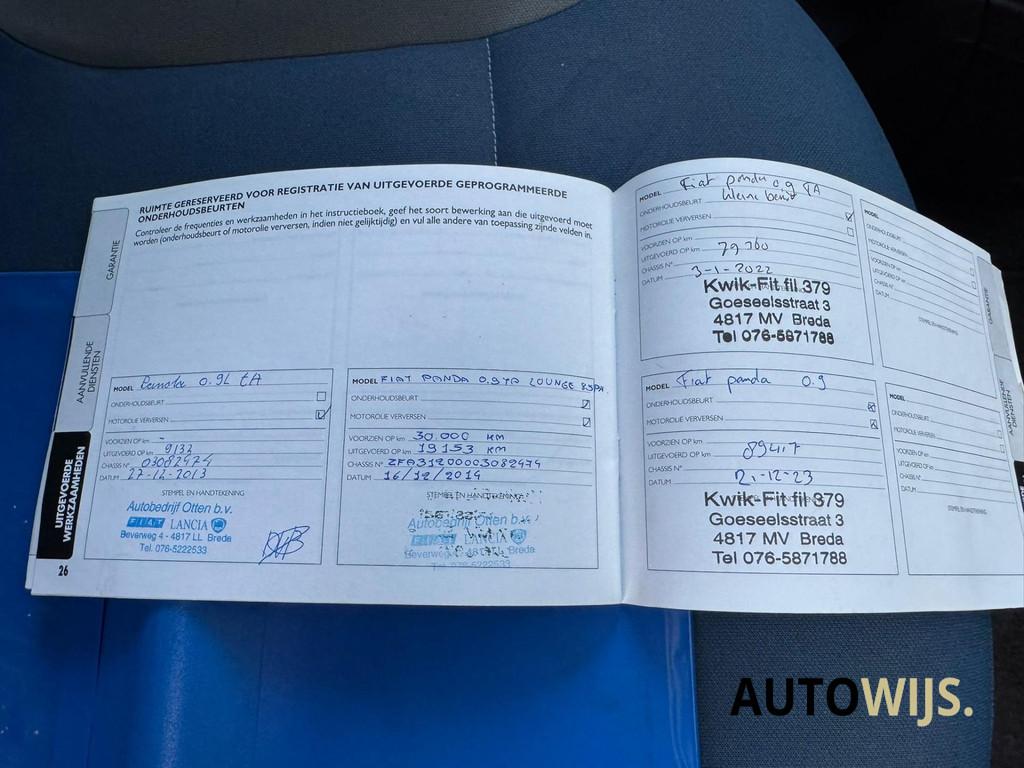 RUIMTE GERESERVEERD VOOR REGISTRATIE VAN UITGEVOERDE GEPROGRAMMEERDE
ONDERHOUDSBEURTEN
Controleer de frequenties en werkzaamheden in het instructieboek, geef het soort bewerking aan die uitgevoerd moet
worden (onderhoudsbeurt of motorolie verversen, indien niet gelijktijdig) en vul alle andere van toepassing zijnde velden in.
GARANTIE
AANVULLENDE
DIENSTEN
UITGEVOERDE
WERKZAAMHEDEN
26
MODEL Panda 0.9L tA
ONDERHOUDSBEURT
MOTOROLIE VERVERSEN
VOORZIEN OP km -
UITGEVOERD OP km 9132
CHASSIS N° 03082474
DATUM 27-12-2013
STEMPEL EN HANDTEKENING
Autobedrijf Otten b.v.
FIAT LANCIA
Beverweg 4 - 4817 LL Breda
Tel. 076-5222533
MODEL FIAT PANDA 0.9TA LOUNGE 85PA
ONDERHOUDSBEURT
MOTOROLIE VERVERSEN
VOORZIEN OP km 30.000 KM
UITGEVOERD OP km 19153 KM
CHASSIS N° ZFA31200003082474
DATUM 16/12/2014
STEMPEL EN HANDTEKENING
Autobedrijf Otten b.v.
FIAT LANCIA
Beverweg 4 - 4817 LL Breda
Tel. 076-5222533
MODEL Fiat panda 0.9 TA
ONDERHOUDSBEURT kleine beurt
MOTOROLIE VERVERSEN
VOORZIEN OP km
UITGEVOERD OP km 79360
CHASSIS N°
DATUM 3-1-2022
Kwik-Fit fil 379
Goeseelsstraat 3
4817 MV Breda
Tel 076-5871788
MODEL Fiat panda 0.9
ONDERHOUDSBEURT
MOTOROLIE VERVERSEN
VOORZIEN OP km
UITGEVOERD OP km 89417
CHASSIS N°
DATUM 21-12-23
Kwik-Fit fil 379
Goeseelsstraat 3
4817 MV Breda
Tel 076-5871788
MODEL
ONDERHOUDSBEURT
MOTOROLIE VERVERSEN
VOORZIEN OP km
UITGEVOERD OP km
CHASSIS N°
DATUM
STEMPEL EN HANDTEKENING
MODEL
ONDERHOUDSBEURT
MOTOROLIE VERVERSEN
VOORZIEN OP km
UITGEVOERD OP km
CHASSIS N°
DATUM
STEMPEL EN HANDTEKENING
GARANTIE
AANVULLENDE
DIENSTEN
AUTOWIJS.